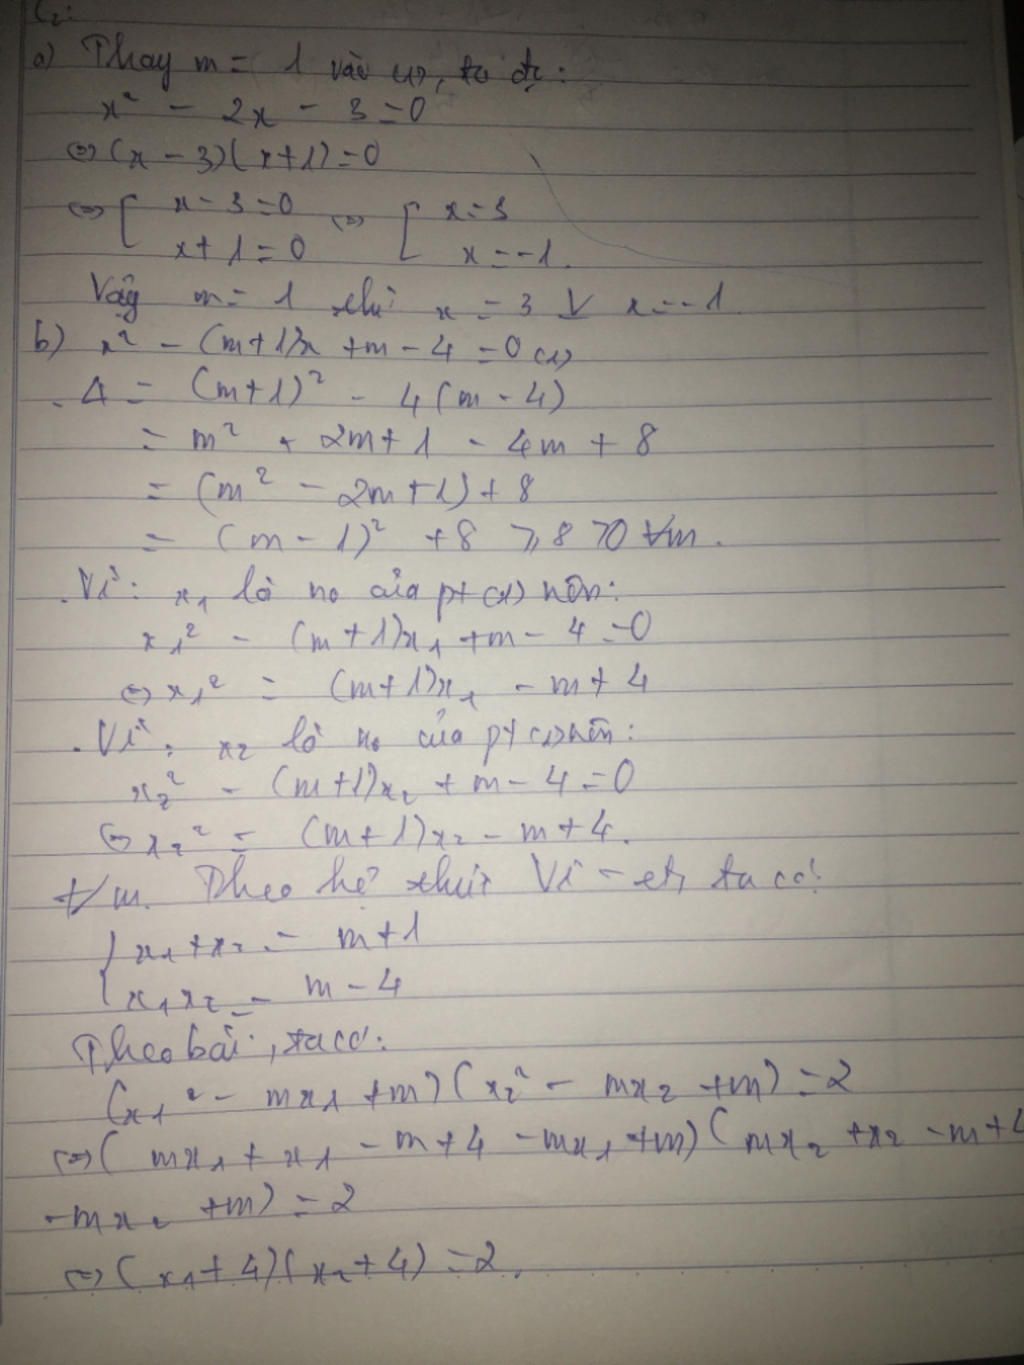 C₂:
a) Thay m = 1 vào (1), ta đc:
x² - 2x - 3 = 0
⇔ (x - 3)(x+1) = 0
⇔ [ x - 3 = 0 ⇔ [ x = 3
x + 1 = 0 x = -1.
Vậy m = 1 thì x = 3 V x = -1
b) x² - (m+1)x + m - 4 = 0 (1)
. Δ = (m+1)² - 4(m - 4)
= m² + 2m + 1 - 4m + 8
= (m² - 2m + 1) + 8
= (m - 1)² + 8 ≥ 8 > 0 ∀m.
. Vì: x₁ là no của pt (1) nên:
x₁² - (m+1)x₁ + m - 4 = 0
⇔ x₁² = (m+1)x₁ - m + 4
. Vì: x₂ là no của pt (1) nên:
x₂² - (m+1)x₂ + m - 4 = 0
⇔ x₂² = (m+1)x₂ - m + 4.
t/m. Theo hệ thức Vi-et, ta có:
{ x₁ + x₂ = m + 1
x₁x₂ = m - 4
Theo bài, ta có:
(x₁² - mx₁ + m)(x₂² - mx₂ + m) = 2
⇔ (mx₁ + x₁ - m + 4 - mx₁ + m)(mx₂ + x₂ - m + 4
- mx₂ + m) = 2
⇔ (x₁ + 4)(x₂ + 4) = 2.